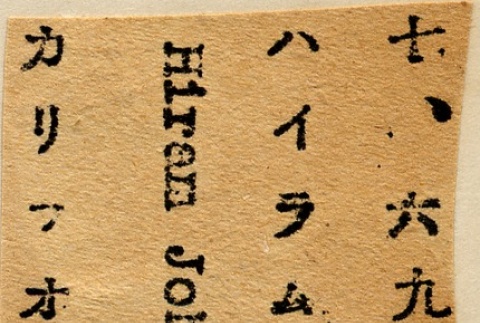 七、六九
ハイラム
Hiram Jo
カリフオ